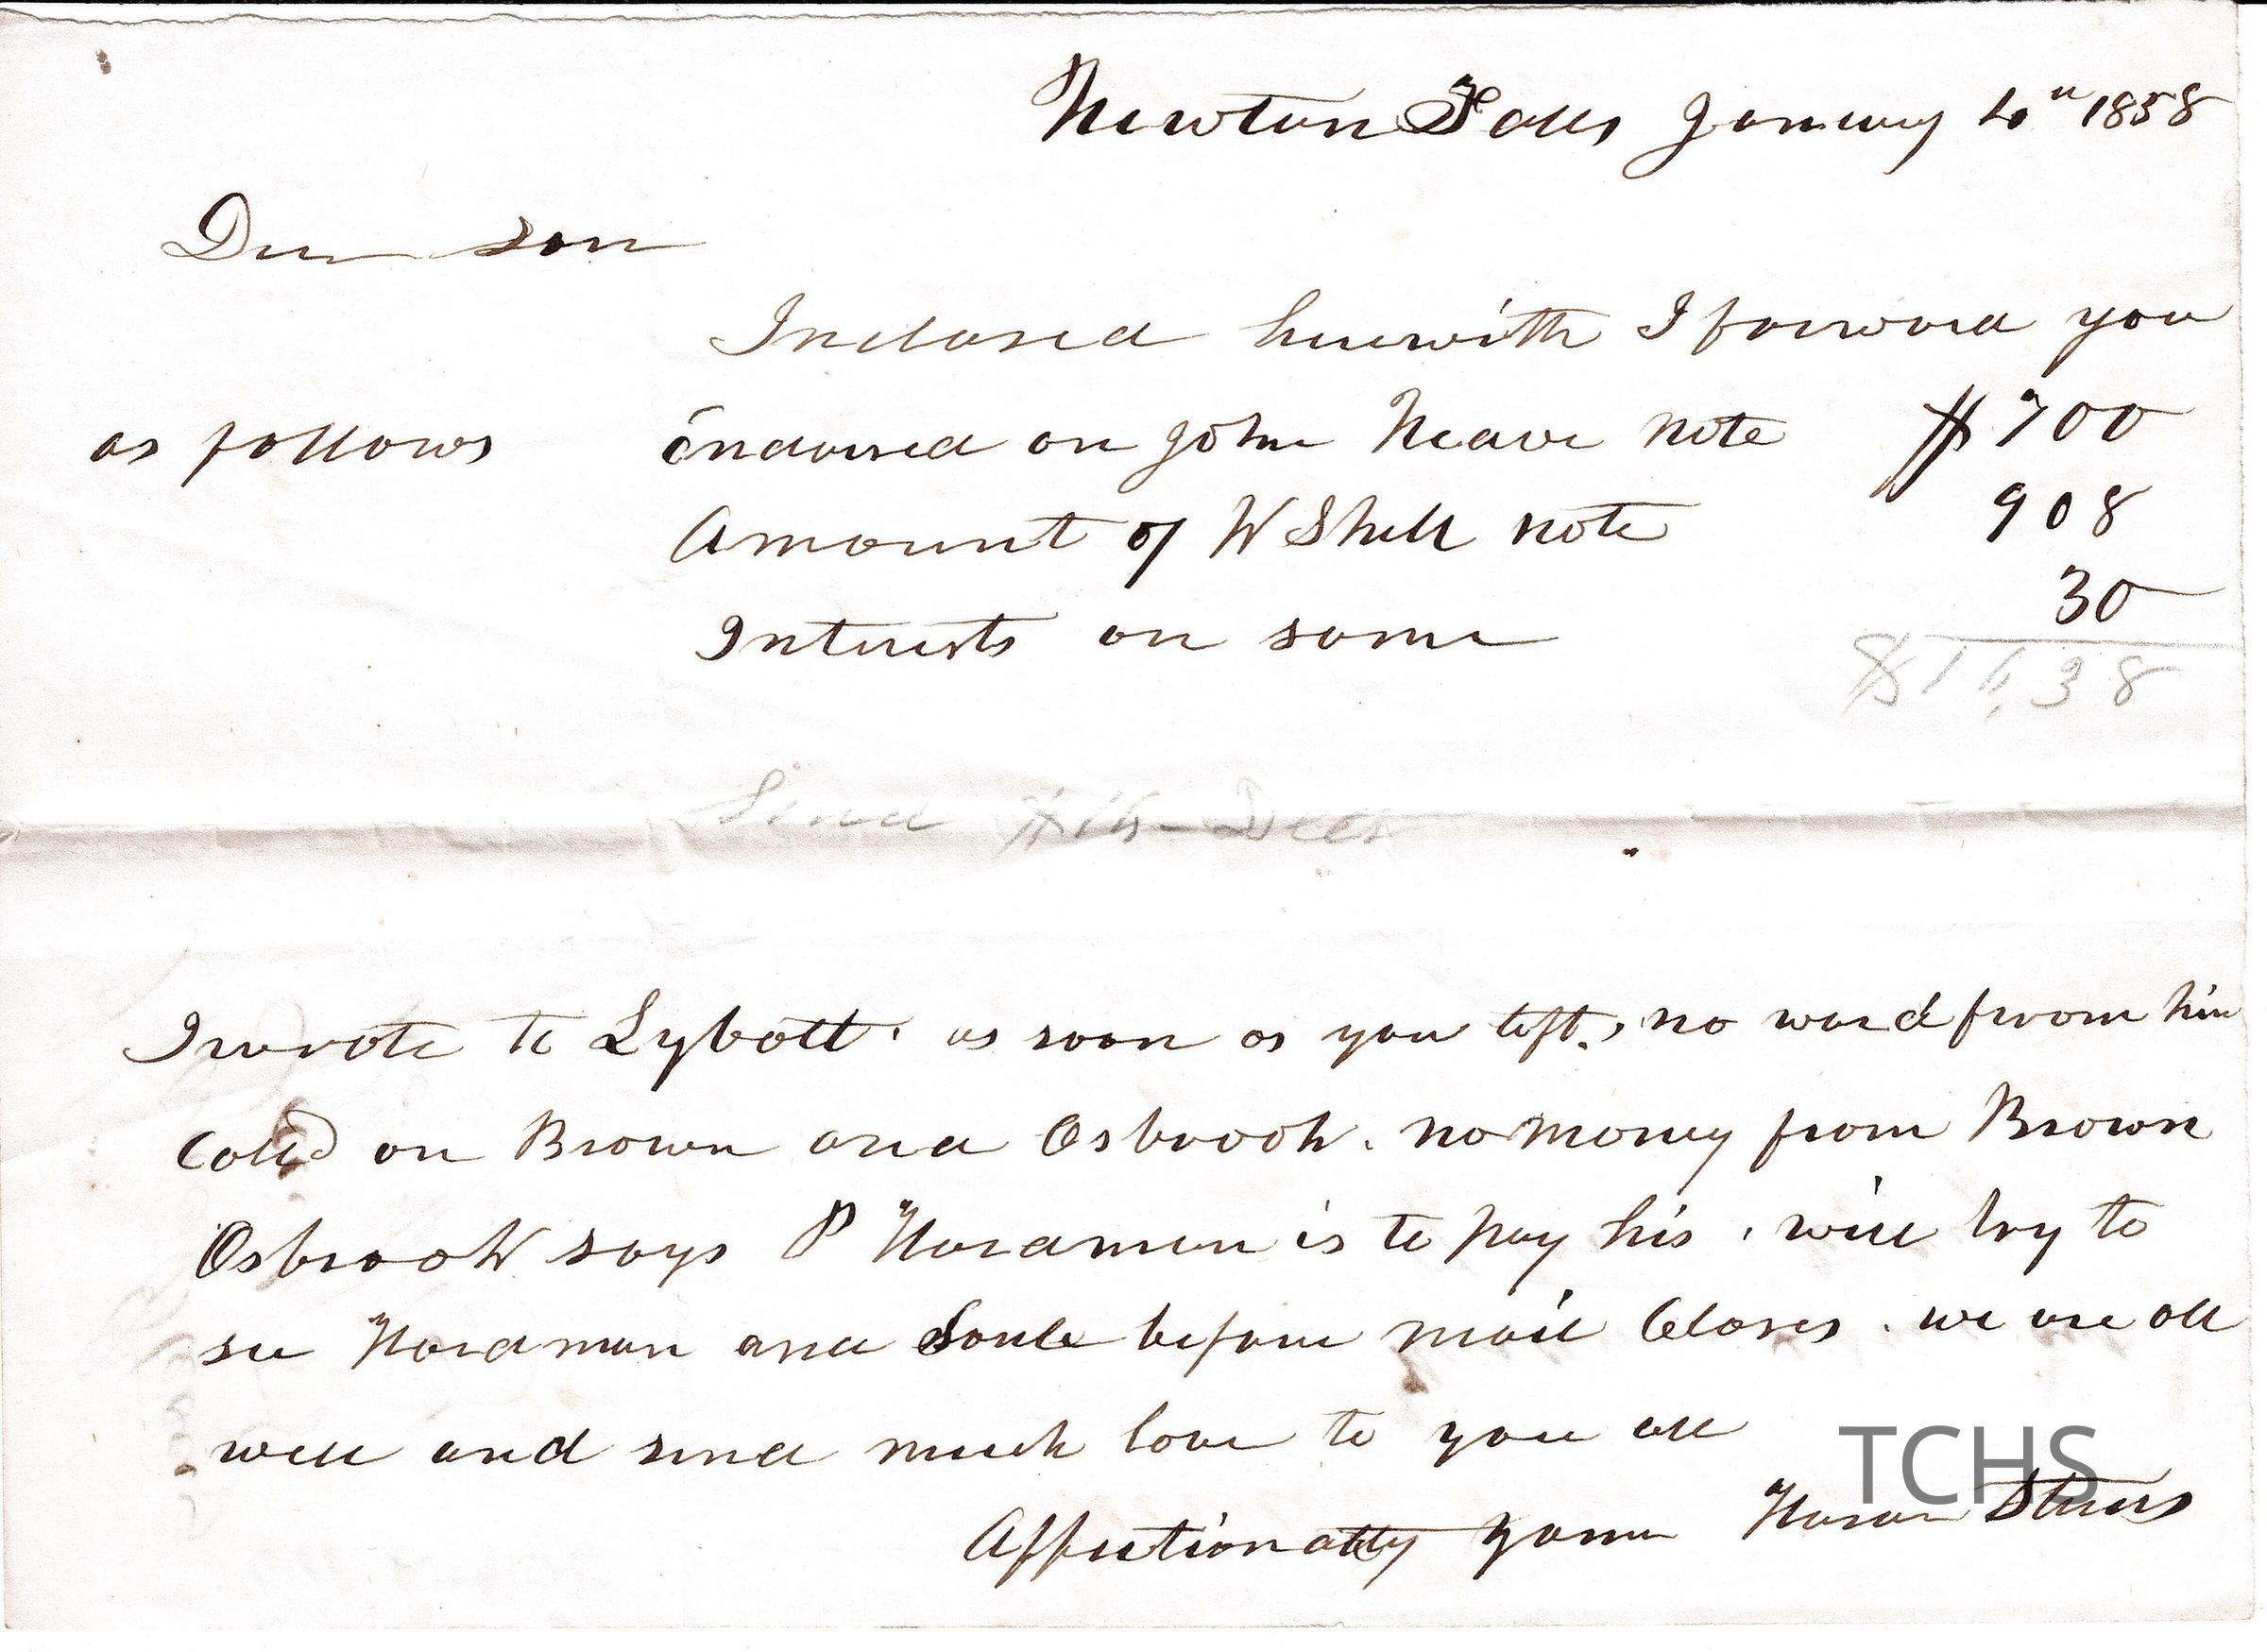 Newton Falls January 1858
Dear Son
Inclosed herewith I forward you
as follows Endorsed on John Neave note $700
Amount of W Shell note 908
Interests on same 30
$16,38
Send
I wrote to Lybolt. as soon as you left, no word from him
Called on Brown and Osbrook. no money from Brown
Osbrook says P Hordman is to pay his, will try to
see Hordman and Soule before mail Closes. we are all
well and send much love to you all
Affectionatly yours Stevens
TCHS